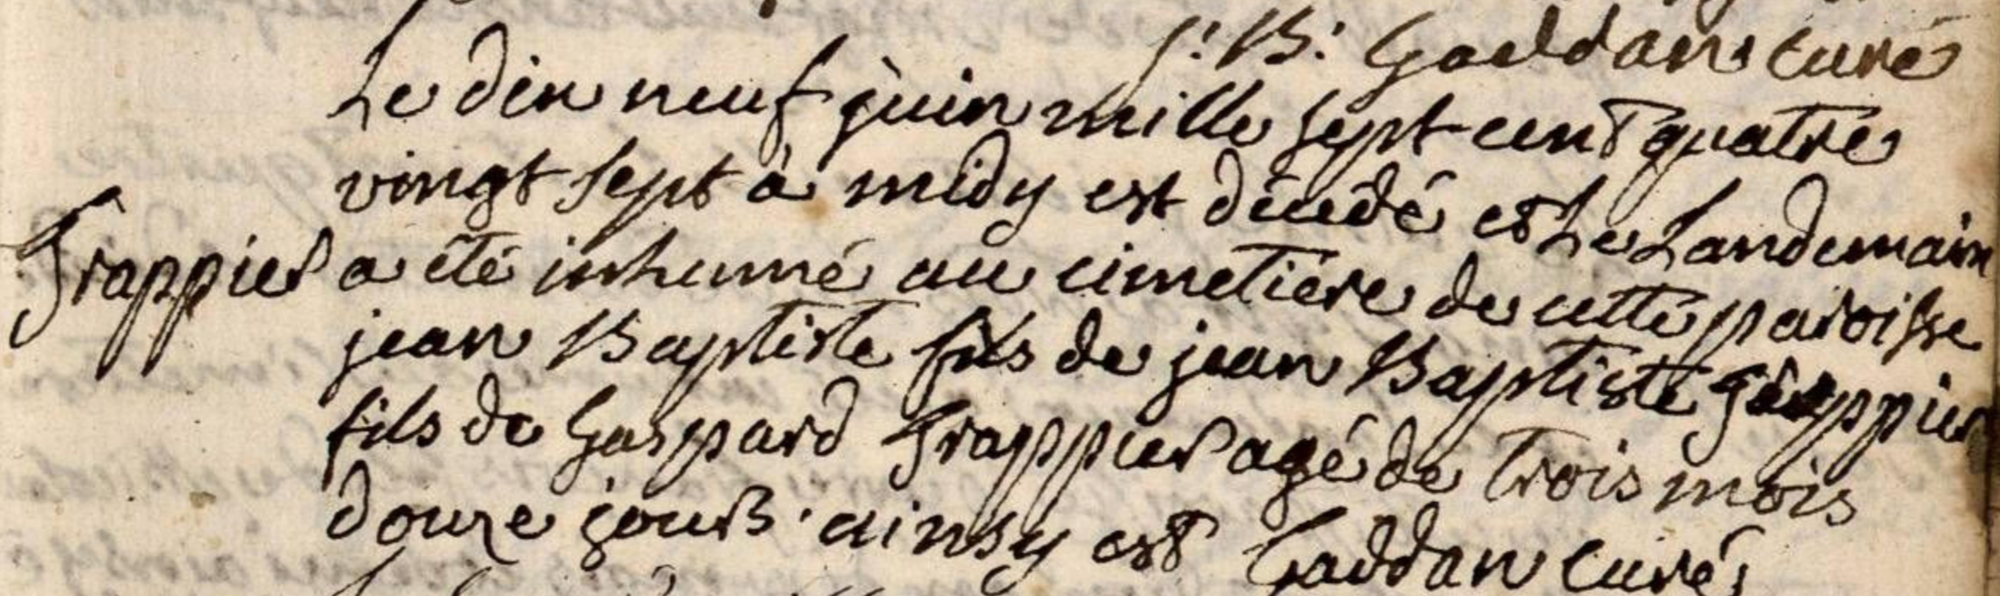 J: B: Gaddan curé
Le dix neuf juin mille sept cent quatre
vingt sept à midy est décédé et Le Landemain
Frappier
a été inhumé au cimetière de cette paroisse
jean Baptiste fils de jean Baptiste Frappier
fils de Gaspard Frappier agé de Trois mois
douze jours. ainsy est Gaddan Curé